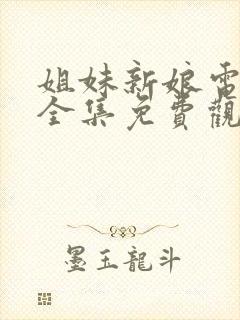 姐妹新娘電
全集免費觀
墨玉龍斗